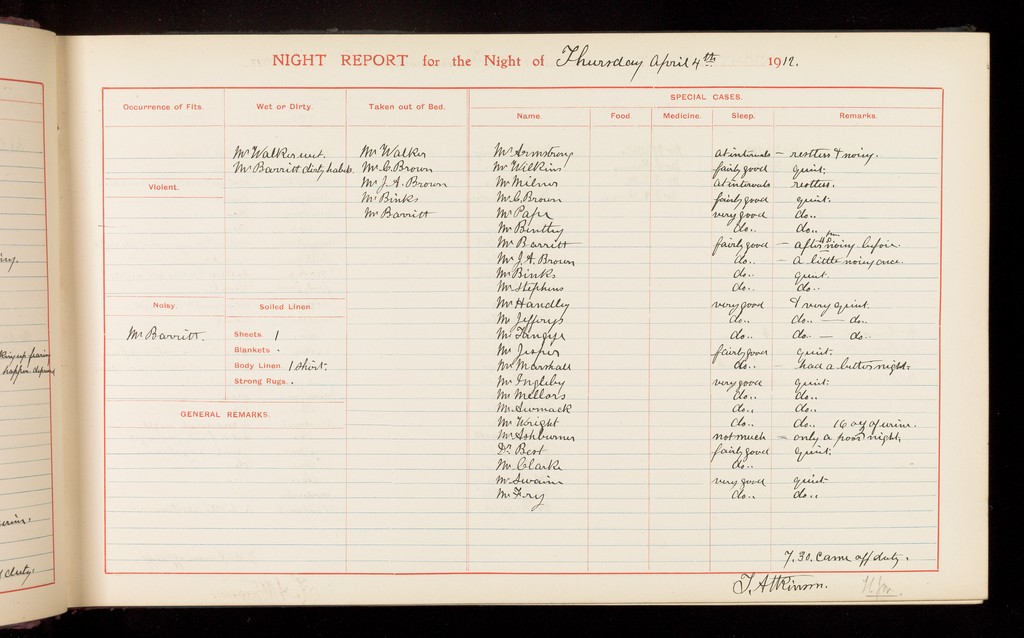 NIGHT REPORT for the Night of Thursday April 4th 1912.
Occurrence of Fits. Wet or Dirty. Taken out of Bed. SPECIAL CASES.
Name. Food. Medicine. Sleep. Remarks.
Mr Walker wet. Mr Walker Mr Armstrong at intervals – restless & noisy.
Mr Barritt dirty habits. Mr C. Brown Mr Wilkins fairly good quiet.
Violent. Mr J. A. Brown Mr Milner at intervals restless.
Mr Binks Mr C. Brown fairly good quiet.
Mr Barritt Mr Pape very good do..
Mr Bintley do.. do..
Mr Barritt fairly good – after noisy before.
Mr J. A. Brown do.. – a little noisy once.
Mr Binks do.. quiet.
Mr Stephens do.. do..
Noisy. Soiled Linen. Mr Handley very good & very quiet.
Mr Jeffreys do.. do.. — do..
Mr Barritt. Sheets. 1 Mr Tangye do.. do.. — do..
Blankets . Mr Jesper fairly good quiet.
Body Linen. 1 shirt. Mr Marshall do.. – had a better night.
Strong Rugs. . Mr Ingleby very good quiet.
Mr Mellors do.. do..
GENERAL REMARKS. Mr do.. do..
Mr Wright do.. do.. 16 oz of urine.
Mr Ashburner not much – only a poor night.
Dr. Best fairly good quiet.
Mr Clarke do..
Mr Swain very good quiet
Mr Fry do.. do..
7.30. Came off duty.
T. Atkinson.